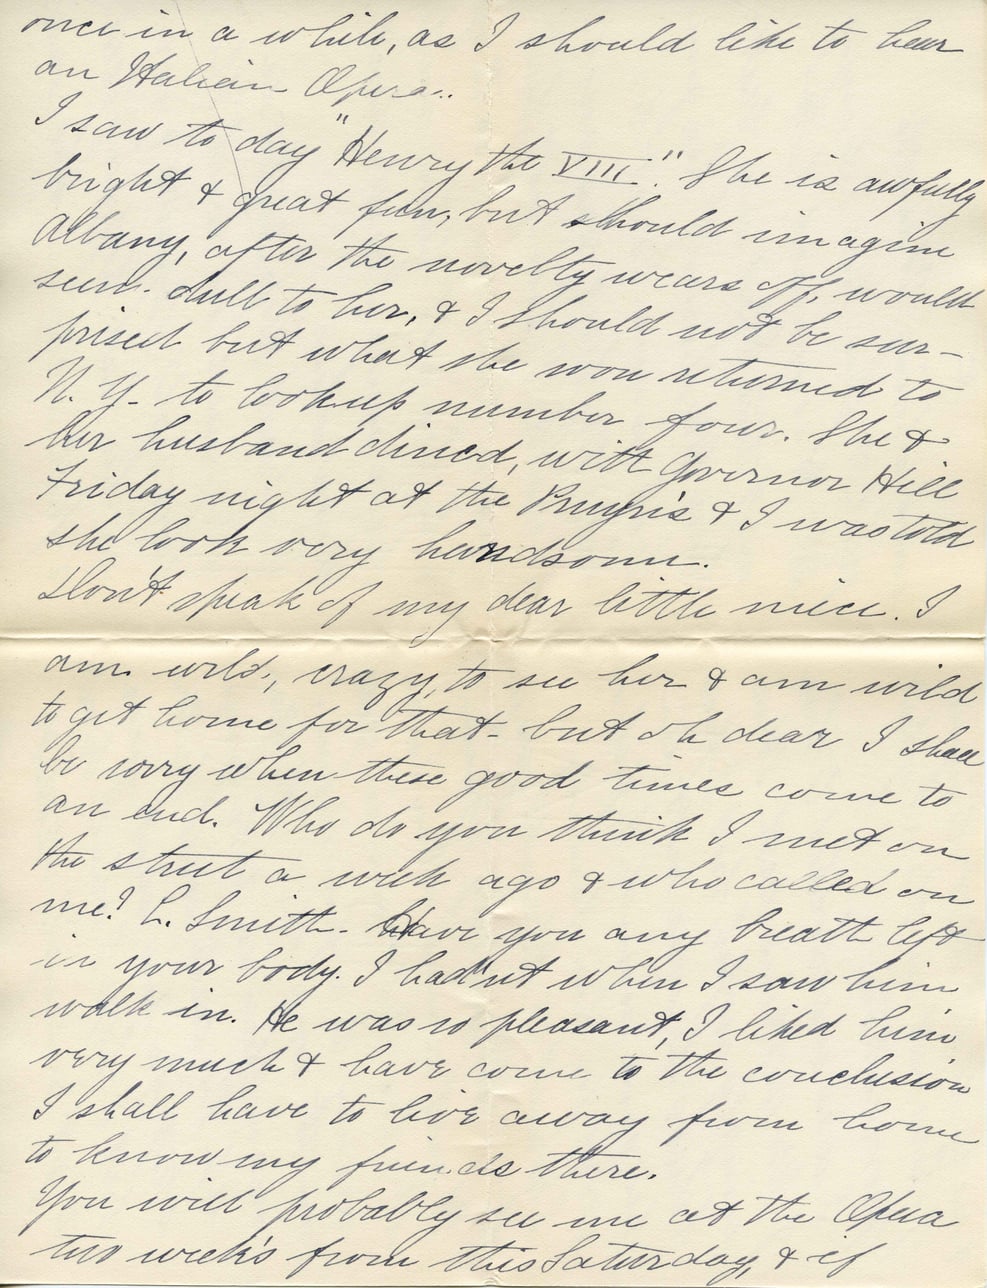 once in a while, as I should like to hear
an Italian Opera..
I saw to day "Henry the VIII". She is awfully
bright & great fun, but should imagine
Albany, after the novelty wears off, would
seem dull to her, & I should not be sur-
prised but what she won returned to
N. Y. to look up number four. She &
her husband dined, with Governor Hill
Friday night at the Pruyn's & I was told
she look very handsome.
Don't speak of my dear little niece. I
am wild, crazy, to see her & am wild
to get home for that - but oh dear I shall
be sorry when these good times come to
an end. Who do you think I met on
the street a week ago & who called on
me? L. Smith. Have you any breath left
in your body. I hadn't when I saw him
walk in. He was so pleasant, I liked him
very much & have come to the conclusion
I shall have to live away from home
to know my friends there.
You will probably see me at the Opera
two week's from this Saturday, & if